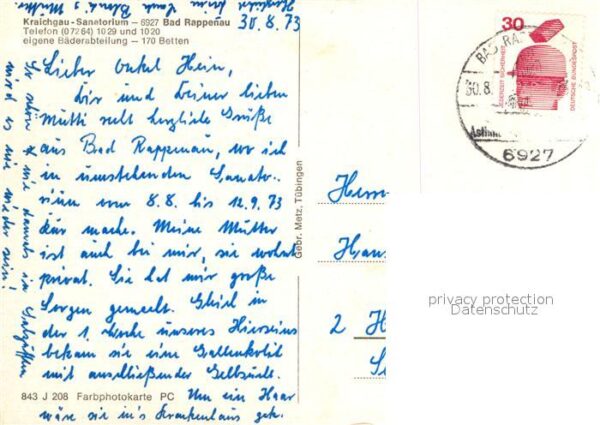 Kraichgau-Sanatorium — 6927 Bad Rappenau
Telefon (07264) 1029 und 1020
eigene Bäderabteilung — 170 Betten
30.8.73
Lieber Onkel Hein,
Dir und Deiner lieben
Mutti recht herzliche Grüße
aus Bad Rappenau, wo ich
in umstehenden Sanato-
rium vom 8.8. bis 12.9.73
Kur mache. Meine Mutter
ist auch bei mir, sie wohnt
privat. Sie hat mir große
Sorgen gemacht. Gleich in
der 1. Woche unseres Hierseins
bekam sie eine Gallenkolik
mit anschließender Gelbsucht.
Um ein Haar
wäre sie in's Krankenhaus gek.
So schön wie damals in
wird es nie wieder sein!
843 J 208 Farbphotokarte PC
Gebr. Metz, Tübingen
30
JEDERZEIT SICHERHEIT
DEUTSCHE BUNDESPOST
BAD RA
30.8.
6927
Herrn
Hans
2 H
privacy protection
Datenschutz